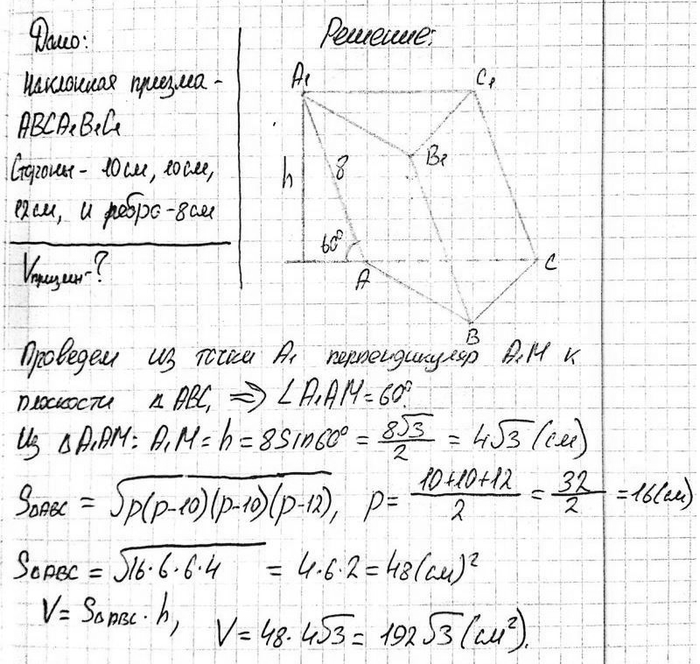 Дано:
Решение:
Наклонная призма -
ABCA₁B₁C₁
Стороны - 10см, 10см,
12см, и ребро - 8см
Vпризм-?
A₁
C₁
B₁
h
8
60°
A
C
B
Проведем из точки A₁ перпендикуляр A₁M к
плоскости △ABC, => ∠A₁AM=60°.
Из △A₁AM: A₁M=h=8sin60°= 8√3/2 = 4√3 (см)
S△ABC = √p(p-10)(p-10)(p-12), p= 10+10+12/2 = 32/2 =16(см)
S△ABC = √16·6·6·4 = 4·6·2=48(см)²
V= S△ABC·h, V=48·4√3=192√3(см²).